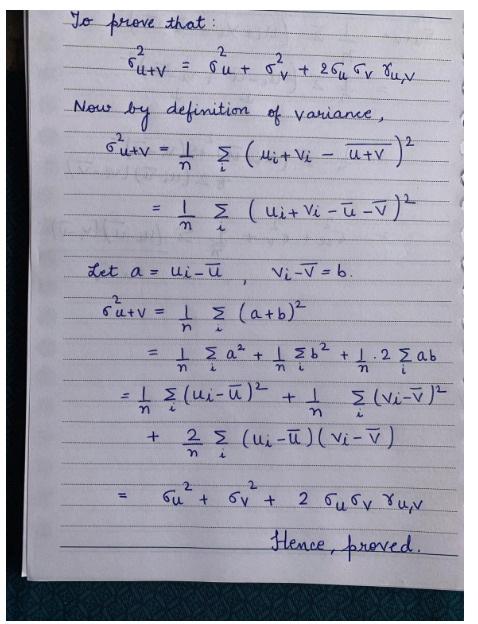 To prove that:
σ²u+v = σ²u + σ²v + 2σu σv γu,v
Now by definition of variance,
σ²u+v = 1/n Σi (ui + vi − u̅+̅v̅)²
= 1/n Σi (ui + vi − u̅ − v̅)²
Let a = ui − u̅ , vi − v̅ = b.
σ²u+v = 1/n Σi (a+b)²
= 1/n Σi a² + 1/n Σi b² + 1/n · 2 Σi ab
= 1/n Σi (ui − u̅)² + 1/n Σi (vi − v̅)²
+ 2/n Σi (ui − u̅)(vi − v̅)
= σu² + σv² + 2 σu σv γu,v
Hence, proved.